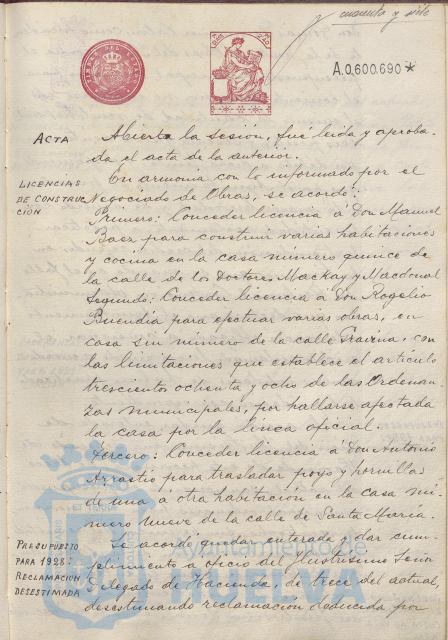 cuarenta y siete
TIMBRE DEL ESTADO
A.0.600.690*
ACTA
Abierta la sesión, fué leida y aproba-
da el acta de la anterior.
LICENCIAS
DE CONSTRUC
CIÓN
En armonia con lo informado por el
Negociado de Obras, se acordó:
Primero: Conceder licencia á Don Manuel
Baez para construir varias habitaciones
y cocina en la casa número quince de
la calle de los Doctores Mackay y Macdonal
Segundo: Conceder licencia á Don Rogelio
Buendia para efectuar varias obras, en
casa sin número de la calle Gravina, con
las limitaciones que establece el articulo
trescientos ochenta y ocho de las Ordenan-
zas municipales, por hallarse afectada
la casa por la linea oficial.
Tercero: Conceder licencia á Don Antonio
Arrastio para trasladar poyo y hornillas
de una á otra habitación en la casa nú-
mero nueve de la calle de Santa Maria.
PRESUPUESTO
PARA 1928:
RECLAMACION
DESESTIMADA
Se acordó quedar enterada y dar cum-
plimiento a oficio del Ilustrisimo Señor
Delegado de Hacienda, de trece del actual,
desestimando reclamación deducida por
Ayuntamiento de
HUELVA